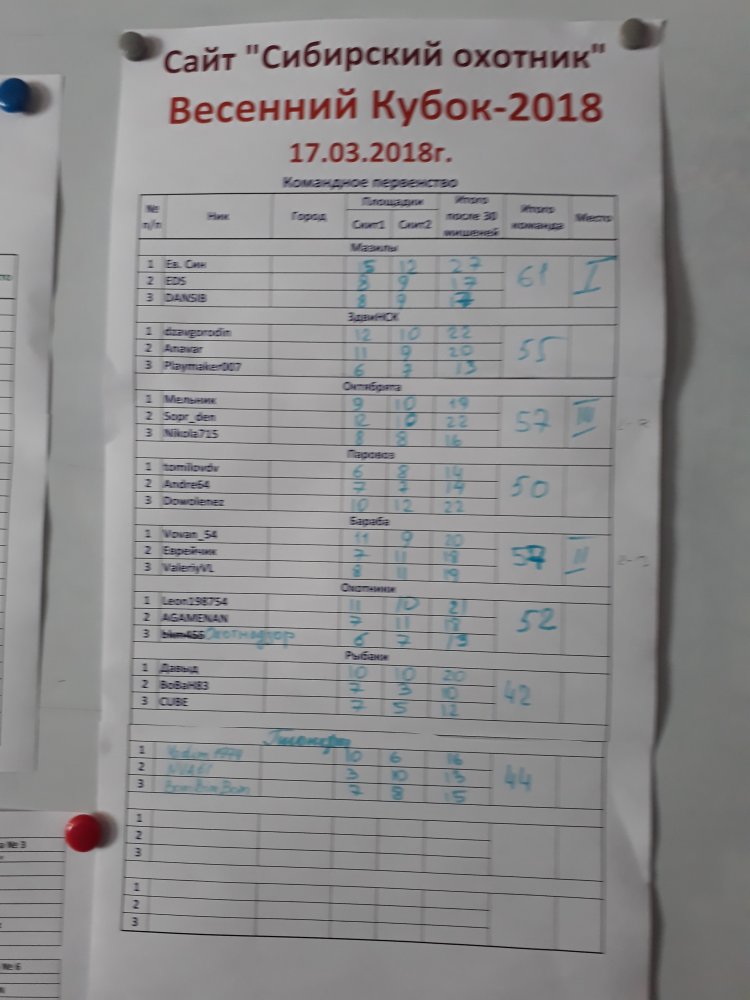 Сайт "Сибирский охотник"
Весенний Кубок-2018
17.03.2018г.
Командное первенство
№ п/п Ник Город Площадки Скит1 Скит2 Итого после 30 мишеней Итого команда Место
Мазилы
1 Ев. Син 15 12 27 61 I
2 EDS 8 9 17
3 DANSIB 8 9 17
ЗдвиНСК
1 dzavgorodin 12 10 22 55
2 Anavar 11 9 20
3 Playmaker007 6 7 13
Октябрята
1 Мельник 9 10 19 57 III
2 Sopr_den 12 10 22
3 Nikola715 8 8 16
Паровоз
1 tomilovdv 6 8 14 50
2 Andre64 7 7 14
3 Dowolenez 10 12 22
Бараба
1 Vovan_54 11 9 20 57 II
2 Еврейчик 7 11 18
3 ValeriyVL 8 11 19
Охотники
1 Leon198754 11 10 21 52
2 AGAMENAN 7 11 18
3 bkm455 Охотнадзор 6 7 13
Рыбаки
1 Давыд 10 10 20 42
2 ВоВаН83 7 3 10
3 CUBE 7 5 12
Пионеры
1 Vadim 1974 10 6 16 44
2 3 10 13
3 BomBomBom 7 8 15
1
2
3
1
2
3
а № 3
№ 6